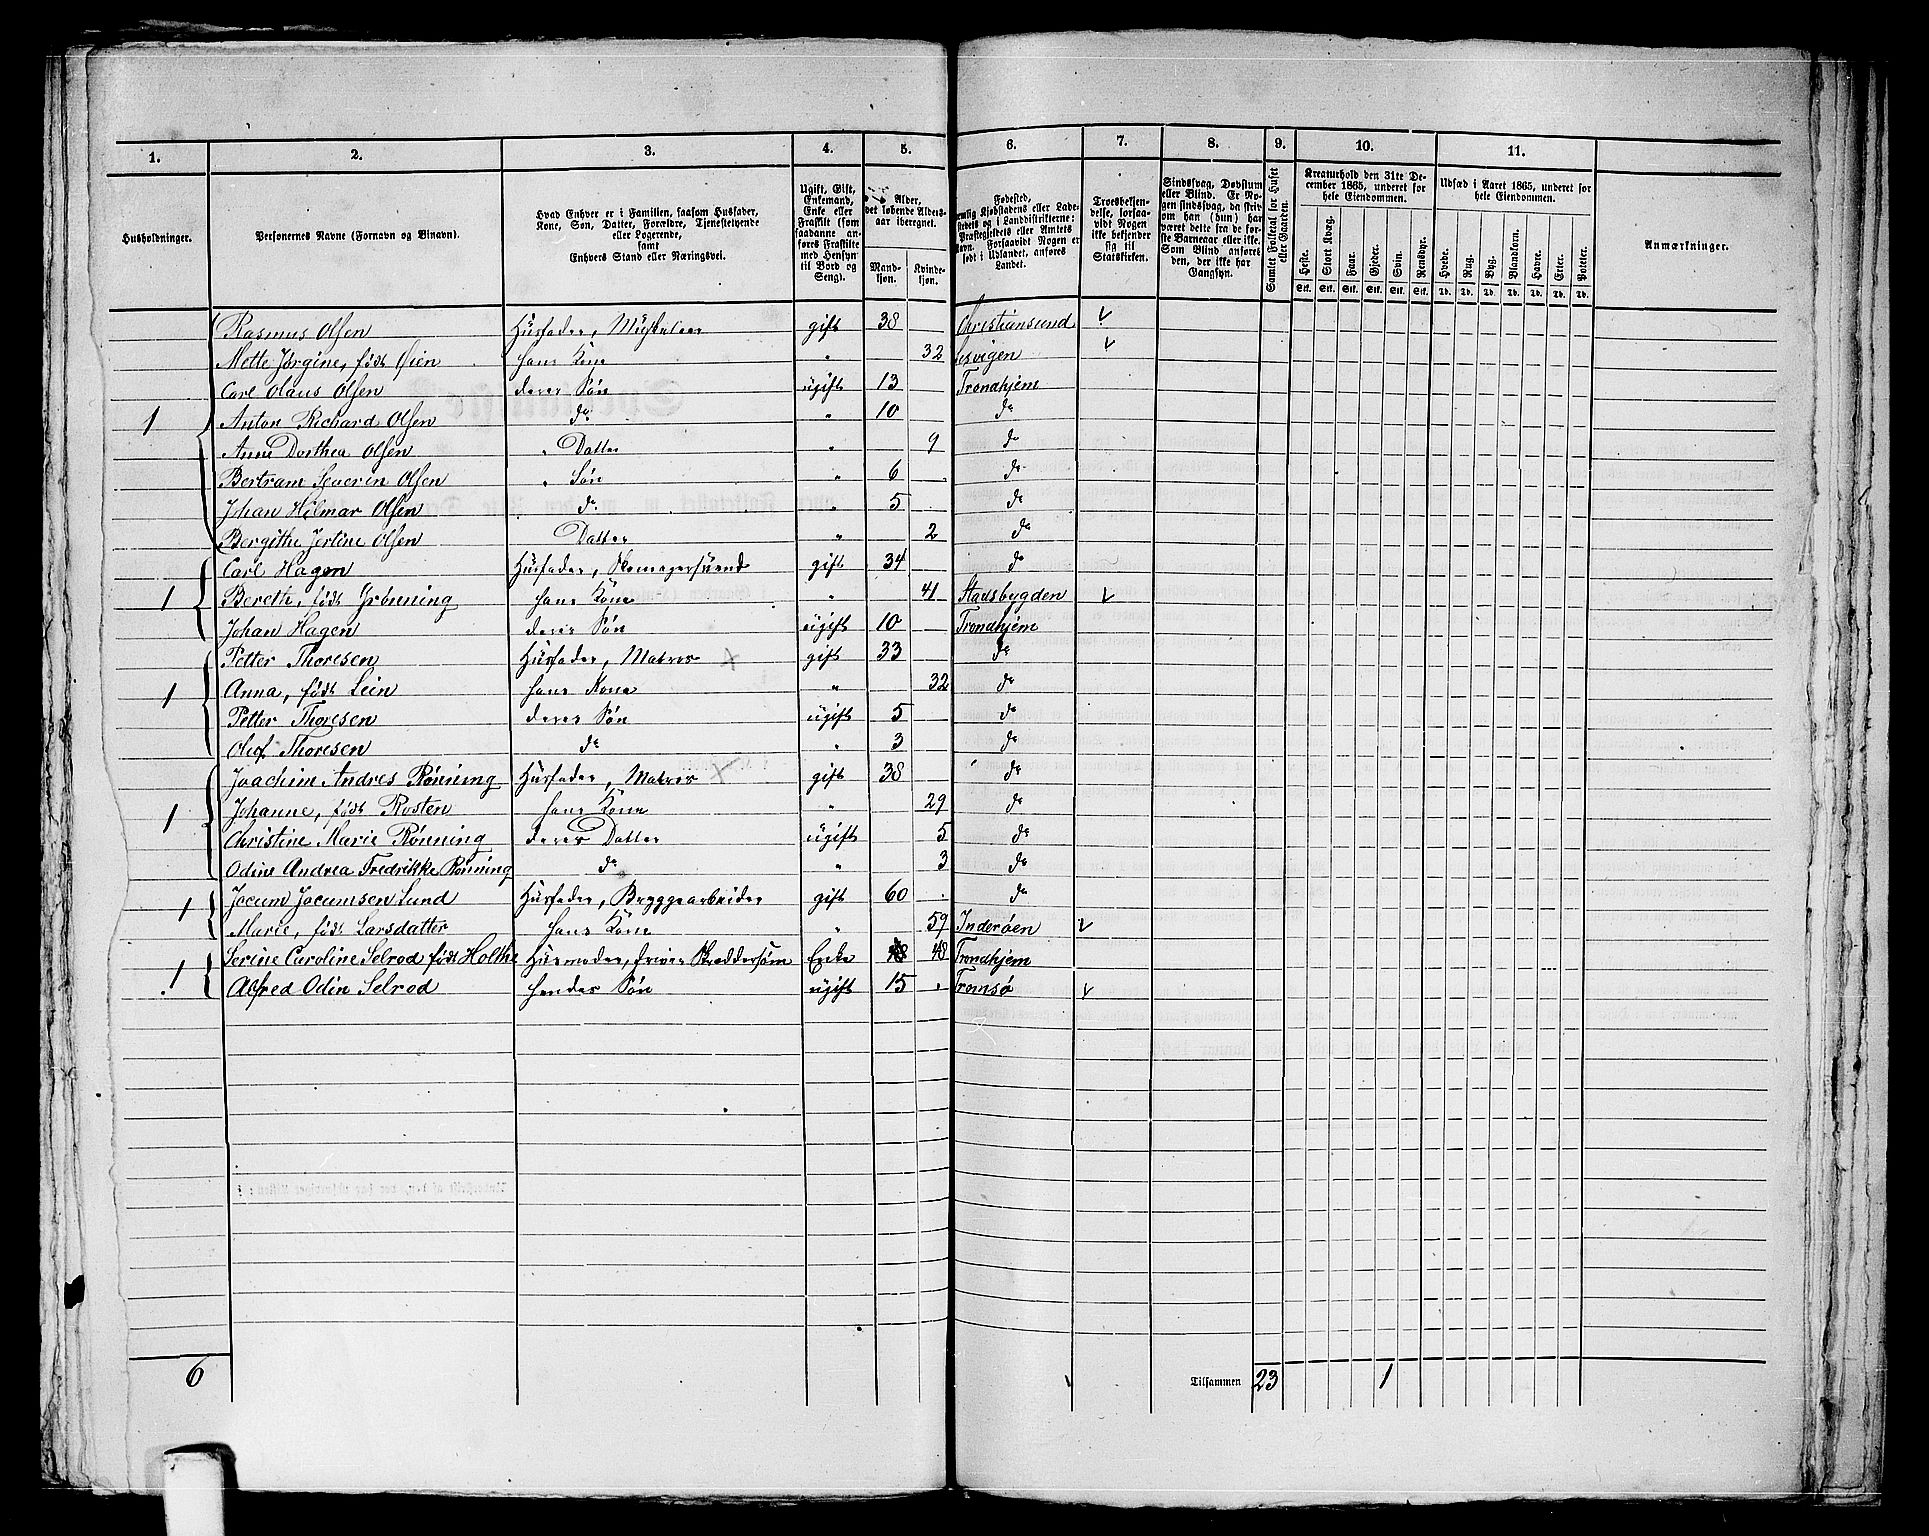 1. 2. 3. 4. 5. 6. 7. 8. 9. 10. 11.
Husholdninger.
Personernes Navne (Fornavn og Binavn).
Hvad Enhver er i Familien, saasom Husfader,
Kone, Søn, Datter, Forældre, Tjenestetyende
eller Logerende,
samt
Enhvers Stand eller Næringsvei.
Ugift, Gift,
Enkemand,
Enke eller
Fraskilt (som
saadanne an-
føres Fraskilte
med Hensyn
til Bord og
Seng).
Alder,
det løbende Alders-
aar iberegnet.
Mand-
kjøn.
Kvinde-
kjøn.
Fødested,
nemlig Kjøbstadens eller Lade-
stedets og i Landdistrikterne:
Præstegjeldets eller Amtets
Navn. Forsaavidt Nogen er
født i Udlandet, anføres
Landet.
Troesbekjen-
delse, forsaa-
vidt Nogen
ikke bekjender
sig til
Statskirken.
Sindssvag, Døvstum
eller Blind. Er No-
gen sindssvag, da skriv
om han (hun) har
været dette fra de før-
ste Barneaar eller ikke.
Som Blind anføres
den, der ikke har
Gangsyn.
Samlet Folketal for Huset
eller Gaarden.
Kreaturhold den 31te De-
cember 1865, underet for
hele Eiendommen.
Heste. Stort Kvæg. Faar. Gjeder. Svin. Rensdyr.
Stk. Stk. Stk. Stk. Stk. Stk.
Udsæd i Aaret 1865, underet for
hele Eiendommen.
Hvede. Rug. Byg. Blandkorn. Havre. Erter. Poteter.
Td. Td. Td. Td. Td. Td. Td.
Anmærkninger.
Rasmus Olsen Husfader, gift 38 Christiansund
Mette Jørgine, født Øien hans Kone " 32
Carl Olaus Olsen deres Søn ugift 13 Trondhjem
1 Anton Richard Olsen do " 10 do
Anne Dorthea Olsen " Datter " 9 do
Bertram Severin Olsen " Søn " 6 do
Johan Hilmar Olsen do " 5 do
Bergithe Jertine Olsen Datter " 2 do
Carl Hagen Husfader, Skomagersvend gift 34 do
1 Bereth, født Grønning hans Kone " 41 Stadsbygden
Johan Hagen deres Søn ugift 10 Trondhjem
Petter Thoresen Husfader, Matros gift 33 do
1 Anna, født Lein hans Kone " 32 do
Petter Thoresen deres Søn ugift 5 do
Oluf Thoresen do " 3 do
Joachim Andres Rønning Husfader, Matros gift 38 do
1 Johanne, født Rosten hans Kone " 29 do
Christine Marie Rønning deres Datter ugift 5 do
Odine Andrea Fredrikke Rønning do " 3 do
1 Jocum Jocumsen Lund Husfader, Bryggearbeider gift 60 do
Marie, født Larsdatter hans Kone " 59 Inderøen
1 Serine Caroline Selrod født Holthe Husmoder, driver Skreddersøm Enke 48 Trondhjem
Alfred Odin Selrod hendes Søn ugift 15 Tromsø
6 Tilsammen 23 1